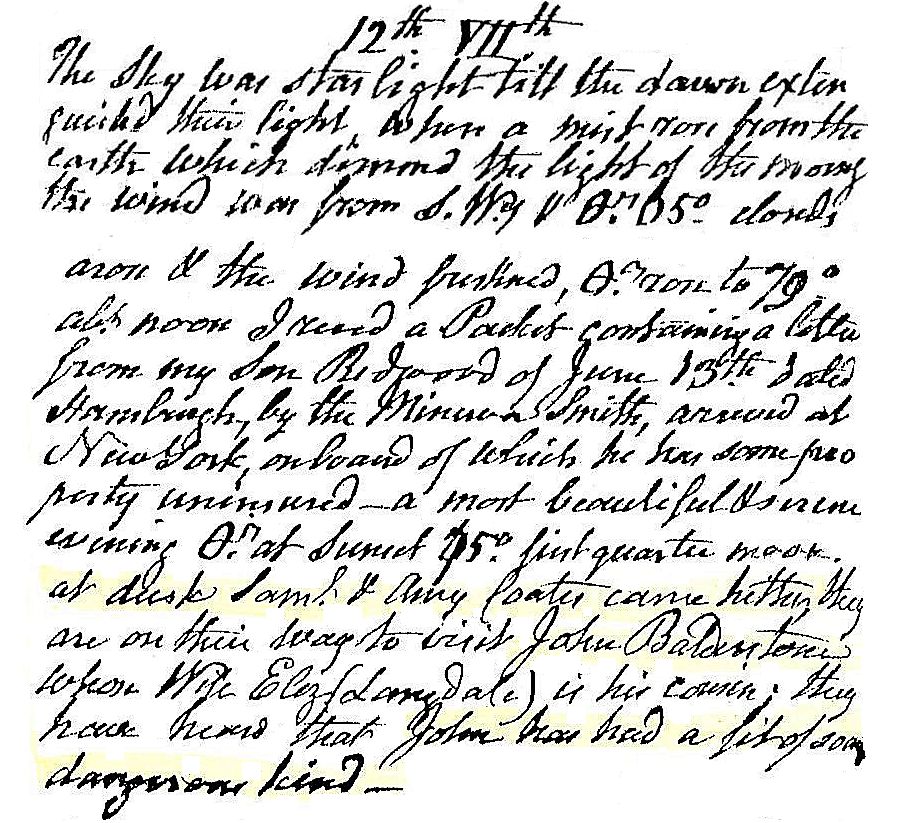 12th VIIth
The Sky was starlight till the dawn extin
guished their light, when a mist rose from the
earth which dimond the light of the morng
the wind was from S. Wly & θr. 65° clouds
arose & the wind freshned, θr. rose to 79°
abt. noon I recevd a Packet containing a letter
from my Son Redwood of June 13th dated
Hambrugh, by the Minerva Smith, arrived at
New York, onboard of which he has some pro
perty uninsured – a most beautiful & serene
evening θr. at Sunset 75° first quarter moon.
at dusk Saml. & Amy Coates came hither they
are on their way to visit John Balderstone
whose Wife Eliz (Langdale) is his cousin; they
have heard that John has had a fit of som
dangerous kind –